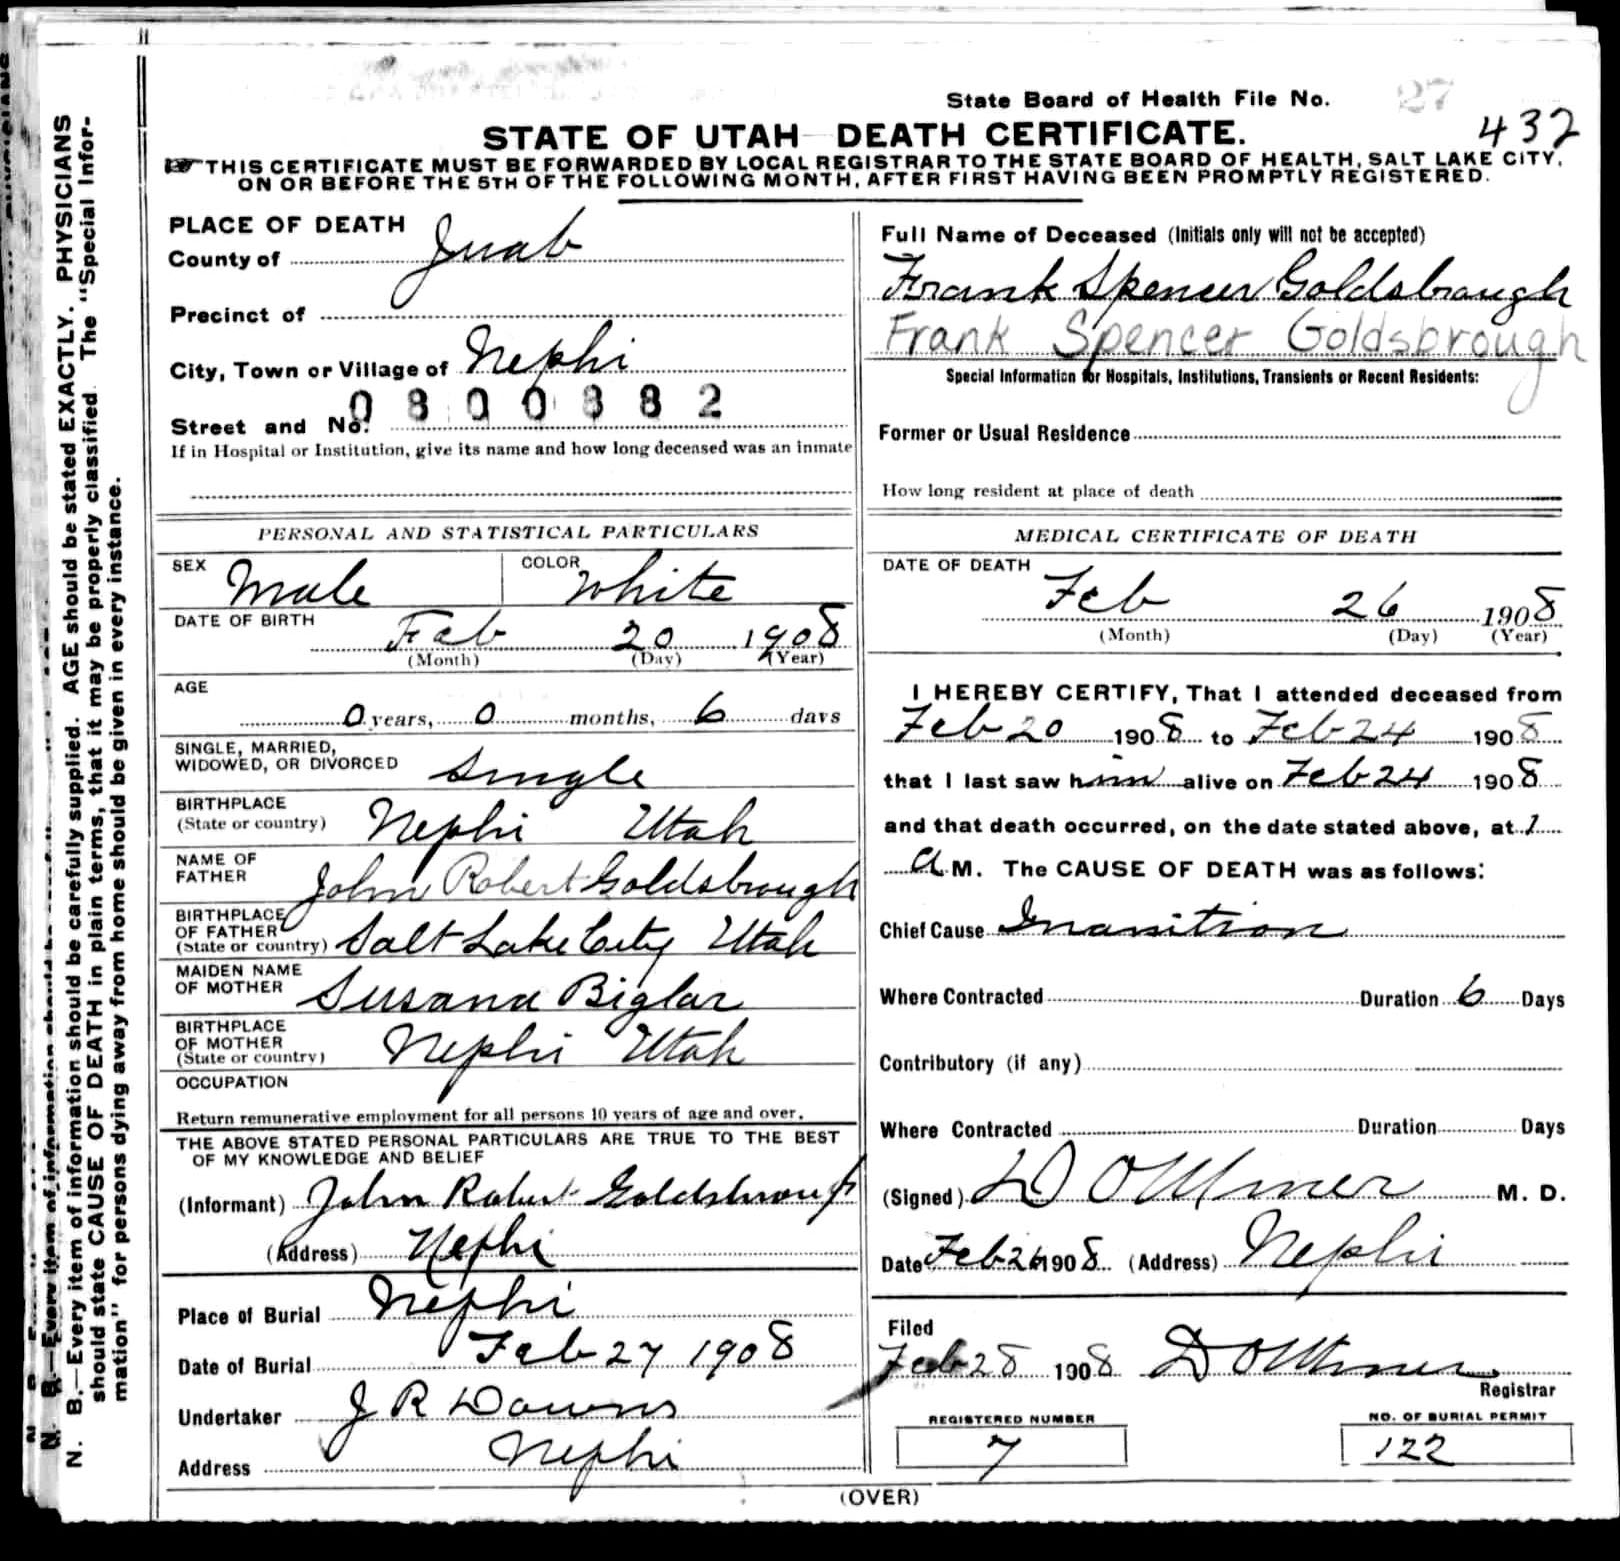 State Board of Health File No. 27
432
STATE OF UTAH DEATH CERTIFICATE.
THIS CERTIFICATE MUST BE FORWARDED BY LOCAL REGISTRAR TO THE STATE BOARD OF HEALTH, SALT LAKE CITY,
ON OR BEFORE THE 5TH OF THE FOLLOWING MONTH, AFTER FIRST HAVING BEEN PROMPTLY REGISTERED.
N. B.—Every item of information should be carefully supplied. AGE should be stated EXACTLY. PHYSICIANS
should state CAUSE OF DEATH in plain terms, that it may be properly classified. The "Special Infor-
mation" for persons dying away from home should be given in every instance.
PLACE OF DEATH
County of Juab
Precinct of
City, Town or Village of Nephi
Street and No.
If in Hospital or Institution, give its name and how long deceased was an inmate
Full Name of Deceased (Initials only will not be accepted)
Frank Spencer Goldsbraugh
Frank Spencer Goldsbrough
Special Information for Hospitals, Institutions, Transients or Recent Residents:
Former or Usual Residence
How long resident at place of death
PERSONAL AND STATISTICAL PARTICULARS
SEX Male COLOR White
DATE OF BIRTH Feb 20 1908
(Month) (Day) (Year)
AGE
0 years, 0 months, 6 days
SINGLE, MARRIED,
WIDOWED, OR DIVORCED Single
BIRTHPLACE
(State or country) Nephi Utah
NAME OF
FATHER John Robert Goldsbrough
BIRTHPLACE
OF FATHER
(State or country) Salt Lake City Utah
MAIDEN NAME
OF MOTHER Susana Biglar
BIRTHPLACE
OF MOTHER
(State or country) Nephi Utah
OCCUPATION
Return remunerative employment for all persons 10 years of age and over.
THE ABOVE STATED PERSONAL PARTICULARS ARE TRUE TO THE BEST
OF MY KNOWLEDGE AND BELIEF
(Informant) John Robert Goldsbrough
(Address) Nephi
Place of Burial Nephi
Date of Burial Feb 27 1908
Undertaker J R Downs
Address Nephi
MEDICAL CERTIFICATE OF DEATH
DATE OF DEATH
Feb 26 1908
(Month) (Day) (Year)
I HEREBY CERTIFY, That I attended deceased from
Feb 20 1908 to Feb 24 1908
that I last saw him alive on Feb 24 1908
and that death occurred, on the date stated above, at 1
A M. The CAUSE OF DEATH was as follows:
Chief Cause Inanition
Where Contracted Duration 6 Days
Contributory (if any)
Where Contracted Duration Days
(Signed) M. D.
Date Feb 26 1908 (Address) Nephi
Filed
Feb 28 1908
Registrar
REGISTERED NUMBER
7
NO. OF BURIAL PERMIT
122
(OVER)